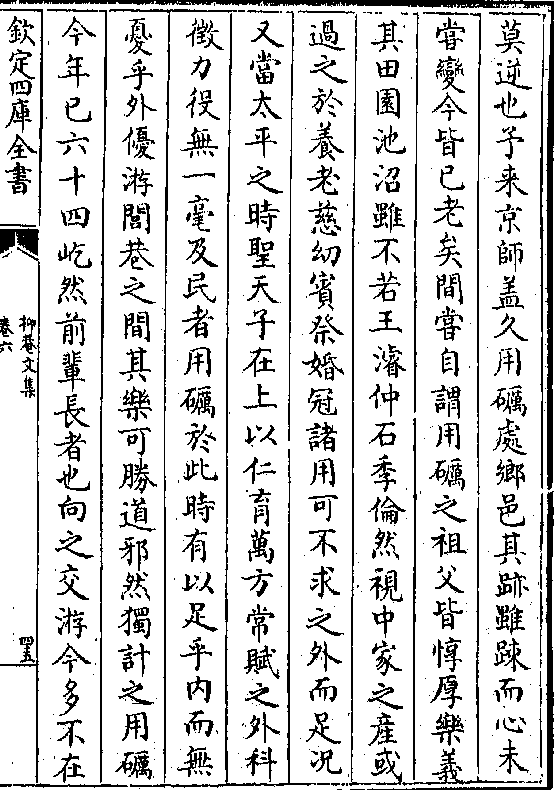 莫逆也予来京師盖久用礪處鄉邑其跡雖踈而心未
嘗變今皆已老矣間嘗自謂用礪之祖父皆惇厚樂義
其田園池沼雖不若王濬仲石季倫然視中家之產或
過之於養老慈幼賓祭婚冠諸用可不求之外而足况
又當太平之時聖天子在上以仁育萬方常賦之外科
徵力役無一毫及民者用礪於此時有以足乎内而無
憂乎外優游閭巷之間其樂可勝道邪然獨計之用礪
今年已六十四屹然前輩長者也向之交游今多不在
欽定四庫全書
抑菴文集
卷六
四五